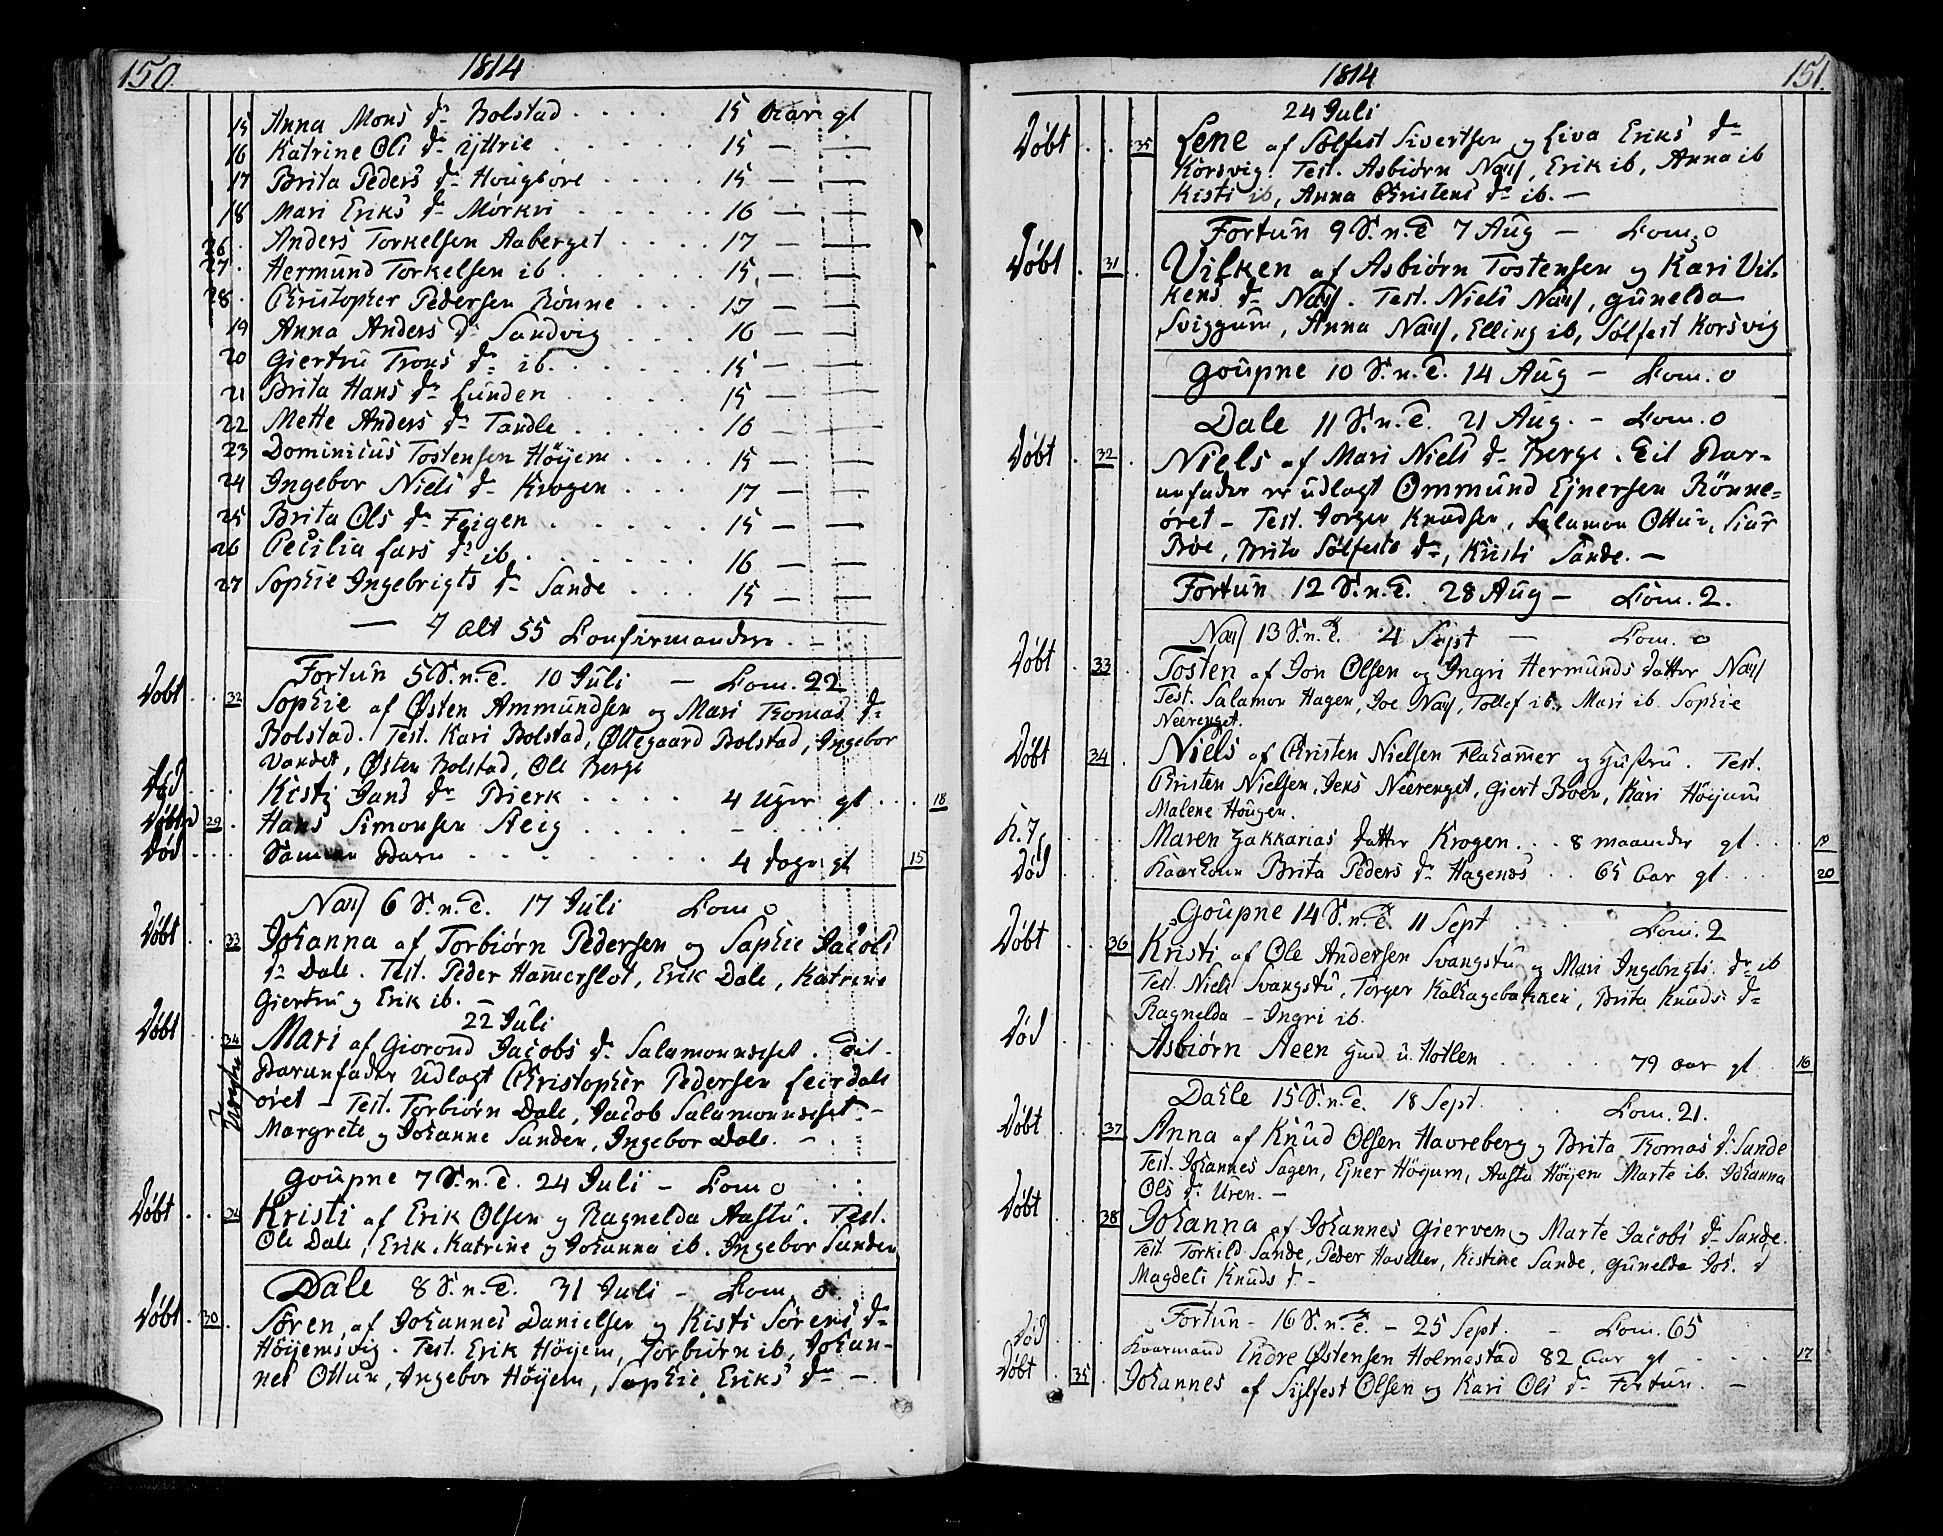 150. 1814
15 Anna Mons dr Bolstad . . . . 15 aar gl
16 Katrine Ols dr Yttrie . . . . . 15 — —
17 Brita Peders dr Hougböre . . . . 15 — —
18 Mari Eriks dr Mörkri . . . . . 16 — —
26. Anders Torkelsen Aaberget . . . . 17 — —
27. Hermund Torkelsen ib . . . . . 15 — —
28. Christopher Pedersen Rönne . . . 17 — —
19 Anna Anders dr Sandvig . . . 16 — —
20 Giertru Trons dr ib. . . . . . 15 — —
21 Brita Hans dr Lunden . . . . 15 — —
22 Mette Anders dr Tandle . . . . . 16 — —
23 Dominicus Tostensen Höyem . . . . 15 — —
24 Ingebor Niels dr Krogen . . . 17 — —
25 Brita Ols dr Feigen . . . . . 15 — —
26 Cecilia Lars dr ib . . . . . . 16 — —
27 Sophie Ingebrigts dr Sande . . . 15 — —
— I alt 55 Confirmander. —
Fortun 5 S. n. T. 10 Juli — Com. 22
Döbt . . 32 Sophie af Östen Ammundsen og Mari Thomas dr
Bolstad. Test. Kari Bolstad, Ollegaard Bolstad, Ingebor
Vandet, Östen Bolstad, Ole Berge
Död . . . Kisti Jans dr Bierk . . . . 4 Uger gl . . . 18
29 . Hans Simonsen Steig . . . . . —
Död . . . Barn . . . . . . . . 4 dage gl 15
Nass 6 S. n. T. 17 Juli Com 0
Döbt . . 33 Johanna af Torbiörn Pedersen og Sophie Jacobs
dr Dale. Test. Peder Hammerslot, Erik Dale, Katrine
Giertru og Erik ib. —
22 Juli
Döbt . . 34 Mari af Giorond Jacobs dr Salamonneset. Til
Barnefader udlagt Christopher Pedersen Leirdals
öret — Test. Torbiörn Dale, Jacob Salamonneset —
Margrete og Johanne Sanden, Ingebor Dale. —
Goupne 7 S. n. T. 24 Juli — Com 0
Döbt . . 24 Kristi af Erik Olsen og Ragnelda Aastu. Test.
Ole Dale, Erik, Katrine og Johanna ib. Ingebor Sanden
Dale 8 S. n. T. 31 Juli — Com. 0.
Döbt . 30 . Sören, af Johannes Danielsen og Kisti Sörens dr
Höyemsvig. Test. Erik Höyem, Torbiörn ib, Johan-
nes Ottun, Ingebor Höyem, Sophie Eriks dr —.
1814 151.
24 Juli
Döbt . . 35 Lene af Sölfest Sivertsen og Liva Eriks dr
Korsvig. Test. Asbiörn Nass, Erik ib, Anna ib
Kisti ib, Anna Christens dr ib. —
Fortun 9 S. n. T 7 Aug — Com. 0
Döbt . 31 . Vilken af Asbiörn Tostensen og Kari Vil-
kens dr Nass. Test. Niels Nass, Gunelda
Sviggum, Anna Nass, Elling ib, Sölfest Korsvig
Goupne 10 S. n. T. 14 Aug — Com. 0
Dale 11 S. n. T. 21 Aug. — Com. 0
Döbt . 32 . Niels af Mari Niels dr Berge. Til Bar-
nefader er udlagt Ommund Ejnersen Rönne=
öret — Test. Torger Knudsen, Salamon Ottun, Siur
Böe, Brita Sölfests dr, Kristi Sande. —
Fortun 12 S. n. T. 28 Aug — Com. 2.
Nass 13 S. n. T. 4 Sept — Com. 0
Döbt . 33 . Tosten af Jon Olsen og Ingri Hermunds datter Nass
Test. Salamon Hagen, Joe Nass, Tollef ib, Mari ib. Sophie
Neerenget.
Döbt . 34 . Niels af Christen Nielsen Flahammer og Hustru. Test.
Christen Nielsen, Jens Neerenget, Giert Boen, Kari Höyum
Malene Hougen.
Maren Zakkarias datter Krogen . . . 8 maaneder gl . . . 19
Död Kaarkone Brita Peders dr Hagenæs . . 65 aar gl . . . 20
Goupne 14 S. n. T 11 Sept . . . Com. 2
Döbt . . 36 Kristi af Ole Andersen Svangstu og Mari Ingebrigts dr ib
Test. Niels Svangstu, Torger Kalhagebakken, Brita Knuds dr
Ragnelda — Ingri ib.
Död . . . . Asbiörn Aeen Hotlen . . . . . 79 aar gl . . 16
Dahle 15 S. n. T. 18 Sept. . . . Com. 21.
Döbt . . 37 Anna af Knud Olsen Havreberg og Brita Thomas dr Sande
Test. Johannes Sagen, Ejner Höyum, Aastu Höyem Marte ib. Johanna
Ols dr Uren. —
Döbt . . 38 Johanna af Johannes Gierven og Marte Jacobs dr Sande.
Test. Torkild Sande, Peder Haveller, Kistine Sande, Gunelda Joh. d
Magdeli Knuds dr —
Fortun — 16 S. n. T. — 25 Sept. — Com. 65
Död . . . Endre Östensen Holmestad 82 aar gl . . . 17
Döbt . 35 . Johannes af Sylfest Olsen og Kari Ols dr Fortun. —